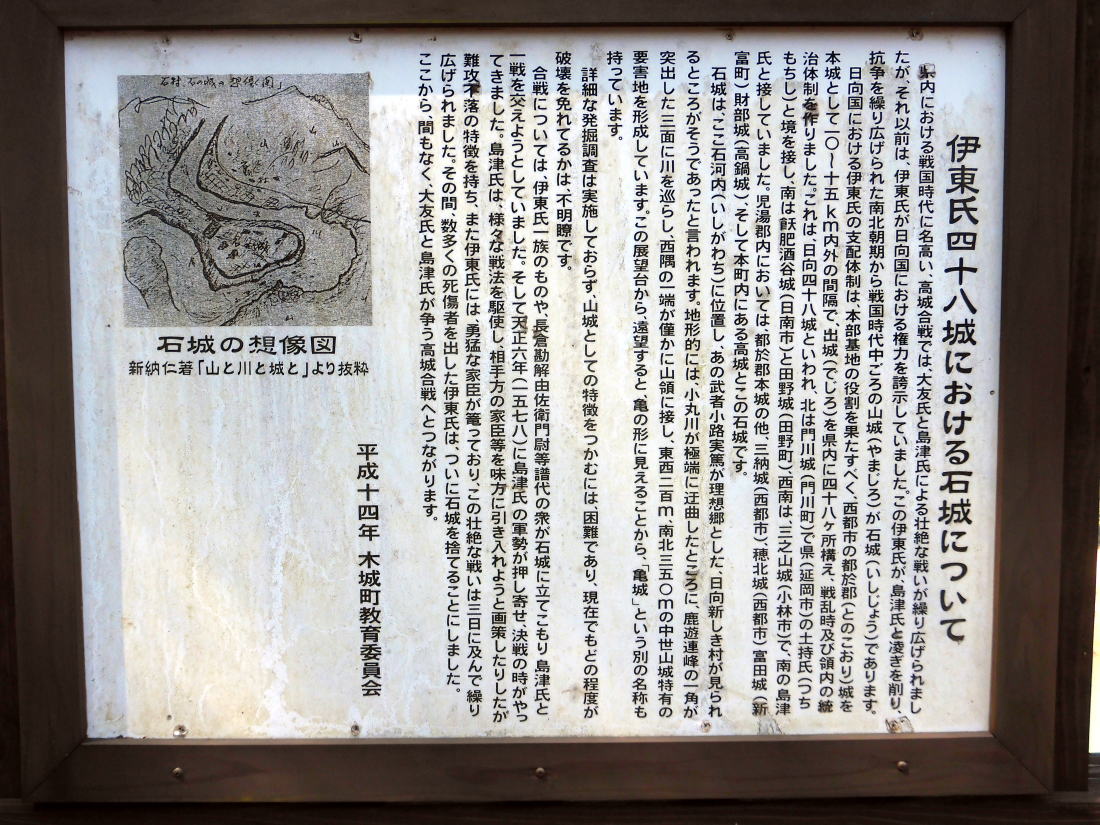 伊東氏四十八城における石城について
県内における戦国時代に名高い、高城合戦では、大友氏と島津氏による壮絶な戦いが繰り広げられまし
たが、それ以前は、伊東氏が日向国における権力を誇示していました。この伊東氏が、島津氏と凌ぎを削り、
抗争を繰り広げられた南北朝期から戦国時代中ごろの山城(やまじろ)が石城(いしじょう)であります。
日向国における伊東氏の支配体制は、本部基地の役割を果たすべく、西都市の都於郡(とのこおり)城を
本城として一〇~十五km内外の間隔で、出城(でじろ)を県内に四十八ヶ所構え、戦乱時及び領内の統
治体制を作りました。これは、日向四十八城といわれ、北は門川城(門川町)で県(延岡市)の土持氏(つち
もちし)と境を接し、南は飫肥酒谷城(日南市)と田野城(田野町)、西南は、三之山城(小林市)で、南の島津
氏と接していました。児湯郡内においては、都於郡本城の他、三納城(西都市)、穂北城(西都市)富田城(新
富町)財部城(高鍋城)、そして本町内にある高城とこの石城です。
石城は、ここ石河内(いしがわち)に位置し、あの武者小路実篤が理想郷とした、日向新しき村が見られ
るところがそうであったと言われます。地形的には、小丸川が極端に迂曲したところに、鹿遊連峰の一角が
突出した三面に川を巡らし、西隅の一端が僅かに山領に接し、東西二百m、南北三五〇mの中世山城特有の
要害地を形成しています。この展望台から、遠望すると、亀の形に見えることから、「亀城」という別の名称も
持っています。
詳細な発掘調査は実施しておらず、山城としての特徴をつかむには、困難であり、現在でもどの程度が
破壊を免れてるかは、不明瞭です。
合戦については、伊東氏一族のものや、長倉勘解由佐衛門尉等譜代の衆が石城に立てこもり 島津氏と
一戦を交えようとしていました。そして天正六年(一五七八)に島津氏の軍勢が押し寄せ、決戦の時がやっ
てきました。島津氏は、様々な戦法を駆使し、相手方の家臣等を味方に引き入れようと画策したりしたが
難攻不落の特徴を持ち、また伊東氏には、勇猛な家臣が篭っており、この壮絶な戦いは三日に及んで繰り
広げられました。その間、数多くの死傷者を出した伊東氏は、ついに石城を捨てることにしました。
ここから、間もなく、大友氏と島津氏が争う高城合戦へとつながります。
平成十四年 木城町教育委員会
石城の想像図
新納仁著「山と川と城と」より抜粋